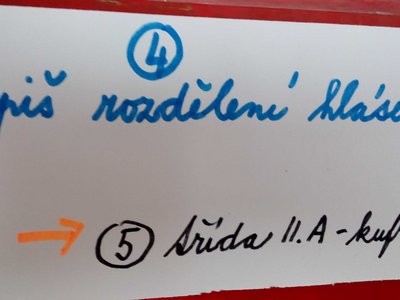 4
piš rozdělení hlás
→ 5 třída II.A - kuf